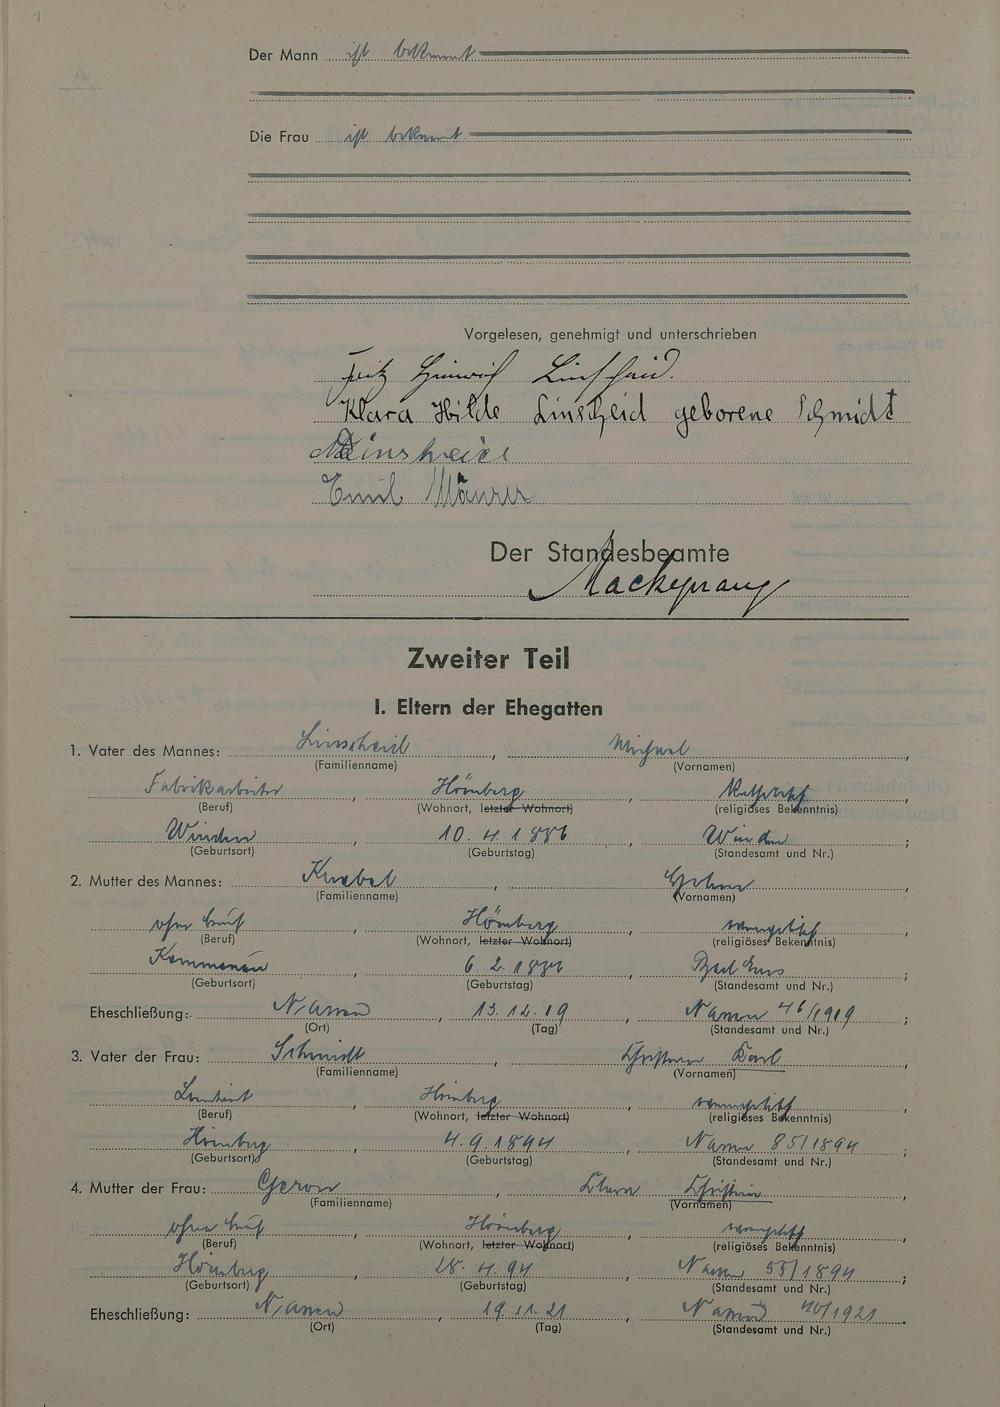 Der Mann ist bekannt
Die Frau ist bekannt
Vorgelesen, genehmigt und unterschrieben
Fritz Heinrich Linscheid.
Klara Hilde Linscheid geborene Schmidt
Emil Maurer
Der Standesbeamte
Mackeprang
Zweiter Teil
I. Eltern der Ehegatten
1. Vater des Mannes: Linscheid, Michael,
(Familienname) (Vornamen)
Fabrikarbeiter, Hömberg,
(Beruf) (Wohnort, letzter Wohnort) (religiöses Bekenntnis)
Winden, 10. 4. 1886, Winden;
(Geburtsort) (Geburtstag) (Standesamt und Nr.)
2. Mutter des Mannes: Knebel,
(Familienname) (Vornamen)
ohne Beruf, Hömberg, evangelisch
(Beruf) (Wohnort, letzter Wohnort) (religiöses Bekenntnis)
Kemmenau, Bad Ems;
(Geburtsort) (Geburtstag) (Standesamt und Nr.)
Eheschließung: Nassau, 13. 12. 19, Nassau 46/1919;
(Ort) (Tag) (Standesamt und Nr.)
3. Vater der Frau: Schmidt, Christian Karl
(Familienname) (Vornamen)
Landwirt, Hömberg, evangelisch
(Beruf) (Wohnort, letzter Wohnort) (religiöses Bekenntnis)
Hömberg, 4. 9. 1894, Nassau 85/1894;
(Geburtsort) (Geburtstag) (Standesamt und Nr.)
4. Mutter der Frau: Christine,
(Familienname) (Vornamen)
ohne Beruf, Hömberg, evangelisch
(Beruf) (Wohnort, letzter Wohnort) (religiöses Bekenntnis)
Hömberg, 28. 4. 94, Nassau 55/1894;
(Geburtsort) (Geburtstag) (Standesamt und Nr.)
Eheschließung: Nassau, 19. 11. 21, Nassau 40/1921.
(Ort) (Tag) (Standesamt und Nr.)